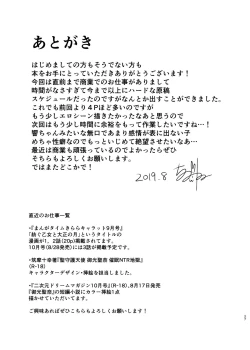 あとがき
はじめましての方もそうでない方も
本をお手にとっていただきありがとうございます！
今回は直前まで商業でのお仕事がありまして
時間がなさすぎて今まで以上にハードな原稿
スケジュールだったのですがなんとか出すことができました。
これでも前回より４Pほど多いのですが
もう少しエロシーン描きたかったなあと思うので
次回はもう少し時間に余裕をもって作業したいですね…！
響ちゃんみたいな無口であまり感情が表に出ない子
めちゃ性癖なのでもっといじめて絶望させたいなあ…
最近は商業も頑張っているのでよかったらぜひ
そちらもよろしくお願いします。
ではまたどこかで！
2019.8
直近のお仕事一覧
・『まんがタイムきららキャラット9月号』
『紡ぐ乙女と大正の月』というタイトルの
漫画が1、2話(20p)掲載されてます。
10月号(8/28発売)には3話が掲載予定です。
・筑摩十幸著『聖守護天使 御光聖奈 催眠NTR地獄』
(R-18)
キャラクターデザイン・挿絵を担当しました。
・『二次元ドリームマガジン10月号』(R-18)、8月17日発売
『御光聖奈』の短編小説にカラー挿絵1点
描かせていただいてます。
ご興味あればぜひこちらもよろしくお願いします！